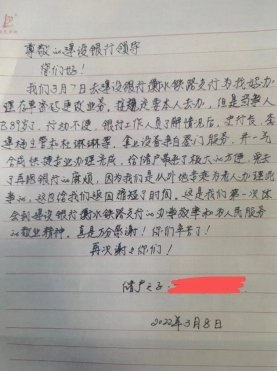 尊敬的建设银行领导
您们好！
我们3月7日去建设银行衡水铁路支行为我奶办
理存单密码更改业务，按规定要本人去办，但是当事人
已89岁了，行动不便，银行工作人员了解情况后，史行长、客
建杨主管和杜琳琳等，拿业设备亲自登门服务，并一气
合成快捷专业办理完成，给储户带来了极大的方便，免去
了再跑银行的麻烦，因为我们是从外地专来为老人办理此
事的，这也给我们返回缩短了时间。这是我们第一次体
会到建设银行衡水铁路支行的办事效率和为人民服务
的敬业精神。真是万分感谢！你们辛苦了！
再次谢々你们！
储户之子
2022年3月8日